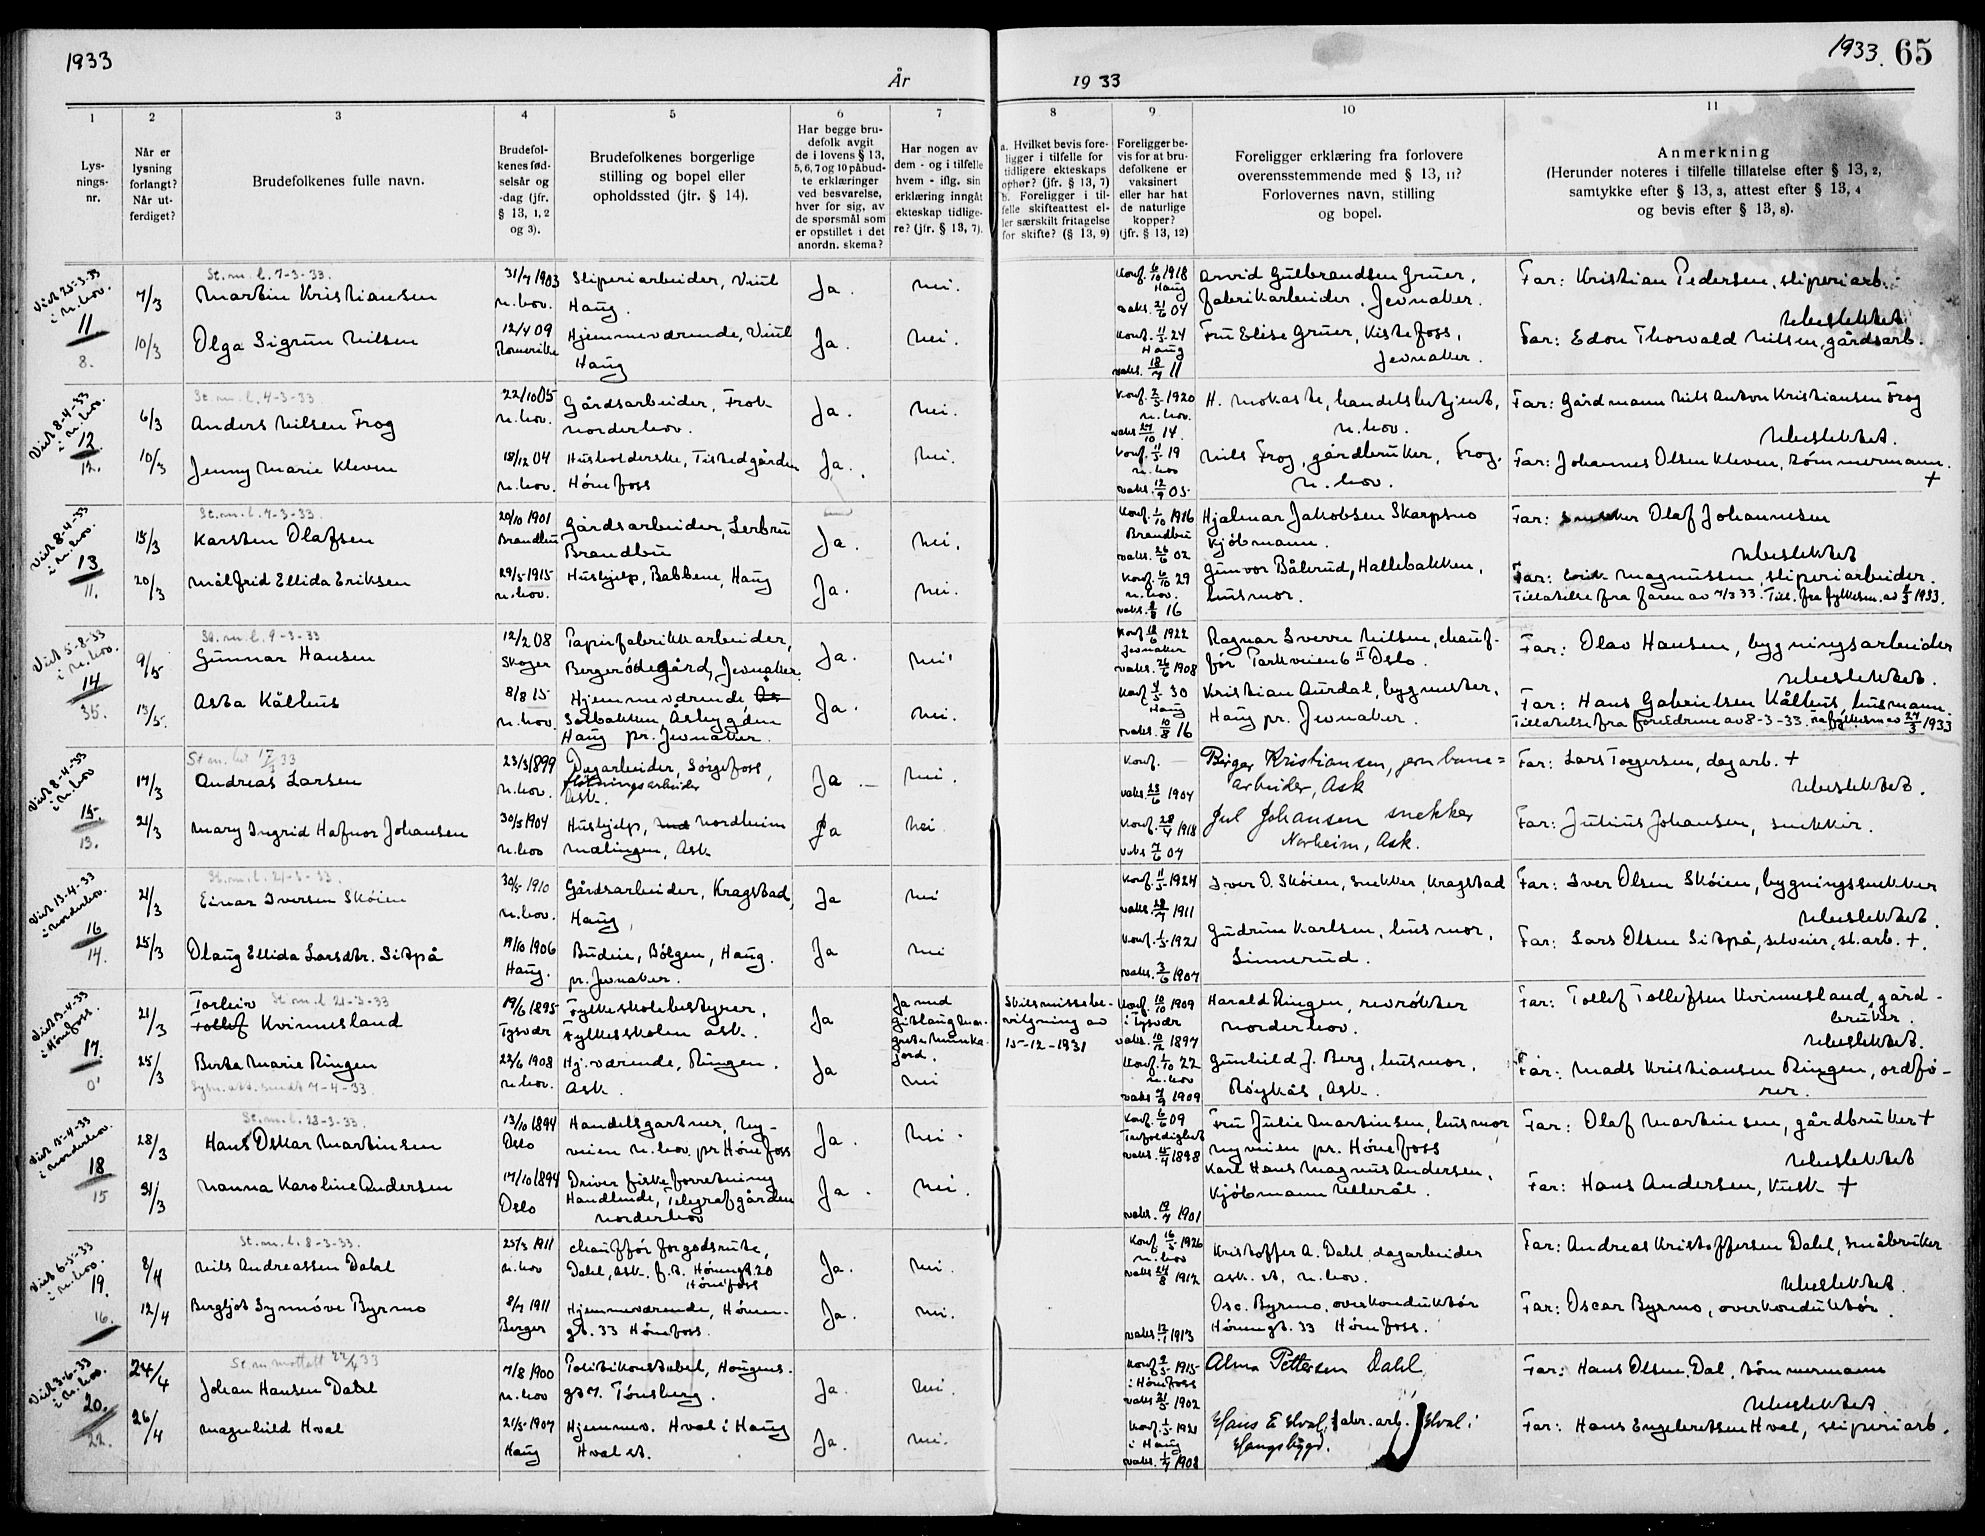 1933
År
19 33
1933. 65
1
2
3
4
5
6
7
8
9
10
11
Lys-
nings-
nr.
Når er
lysning
forlangt?
Når ut-
ferdiget?
Brudefolkenes fulle navn.
Brudefol-
kenes fød-
selsår og
-dag (jfr.
§ 13, 1, 2
og 3).
Brudefolkenes borgerlige
stilling og bopel eller
opholdssted (jfr. § 14).
Har begge bru-
defolk avgit
de i lovens § 13,
5, 6, 7 og 10 påbud-
te erklæringer
ved besvarelse,
hver for sig, av
de spørsmål som
er opstillet i det
anordn. skema?
Har nogen av
dem - og i tilfelle
hvem - iflg. sin
erklæring inngåt
ekteskap tidlige-
re? (jfr. § 13, 7).
a. Hvilket bevis fore-
ligger i tilfelle for
tidligere ekteskaps
ophør? (jfr. § 13, 7)
b. Foreligger i til-
felle skifteattest el-
ler særskilt fritagelse
for skifte? (§ 13, 9)
Foreligger be-
vis for at bru-
defolkene er
vaksinert
eller har hat
de naturlige
kopper?
(jfr. § 13, 12)
Foreligger erklæring fra forlovere
overensstemmende med § 13, 11?
Forlovernes navn, stilling
og bopel.
Anmerkning
(Herunder noteres i tilfelle tillatelse efter § 13, 2,
samtykke efter § 13, 3, attest efter § 13, 4
og bevis efter § 13, 8).
Viet 25-3-33
i N.hov.
11
8.
7/3
St. m. l. 7-3-33.
Martin Kristiansen
31/7 1903
N.hov.
Sliperiarbeider, Viul
Haug.
Ja.
Nei.
Konf. 6/10 1918
Haug
vaks. 21/6 04
Arvid Gulbrandsen Gruer,
fabrikarbeider. Jevnaker.
Far: Kristian Pedersen, sliperiarb.
Ubeslektet
10/3
Olga Sigrun Nilsen
12/4 09
Romerike
Hjemmeværende, Viul
Haug
Ja.
Nei.
Konf. 11/5 24
Haug
vaks. 18/7 11
Fru Elise Gruer, Kistefoss,
Jevnaker.
Far: Edon Thorvald Nilsen, gårdsarb.
Viet 8-4-33
i N.hov.
12
12.
6/3
St. m. l. 4-3-33.
Anders Nilsen Frog
22/10 05
N.hov.
Gårdsarbeider, Frok
Norderhov.
Ja.
Nei.
Konf. 2/5 1920
N.hov.
vaks. 27/10 14.
H. Mokaste, handelsbetjent,
N.hov.
Far: Gårdmann Nils Anton Kristiansen Frog
Ubeslektet.
10/3
Jenny Marie Kleven
18/12 04
N.hov.
Husholderske, Tistedgården
Hønefoss
Ja.
Nei.
Konf. 11/5 19
N.hov
vaks. 12/9 05.
Nils Frog, gårdbruker, Frog.
N.hov.
Far: Johannes Olsen Kleven, tømmermann.
+
Viet 8-4-33
i N.hov.
13
11.
15/3
St. m. l. 7-3-33.
Karsten Olafsen
20/10 1901
Brandbu
Gårdsarbeider, Lerbru
Brandbu
Ja.
Nei.
Konf. 1/10 1916
Brandbu
vaks. 26/6 02
Hjalmar Jakobsen Skarpsno
Kjøbmann.
Far: Snekker Olaf Johannesen
Ubeslektet
20/3
Målfrid Ellida Eriksen
29/5 1915
N.hov.
Hushjelp, Babbene, Haug
Ja.
Nei.
Konf. 6/10 29
N.hov.
vaks. 8/8 16
Gunvor Bålerud, Hallebakken,
husmor.
Far: Erik Magnussen, sliperiarbeider.
Tillatelse fra faren av 7/3 33. Till. fra fylkesm. av 1933.
Viet 5-8-33
i N.hov.
14
35.
9/5
St. m. l. 9-3-33
Gunnar Hansen
12/2 08
Skoger
Papirfabrikkarbeider,
Bergerødegård, Jevnaker
Ja.
Nei
Konf. 18/6 1922
Jevnaker
vaks. 26/6 1908
Ragnar Sverre Nilsen, chauf-
før Parkveien 6 II Oslo.
Far: Olav Hansen, bygningsarbeider
Ubeslektet.
13/5.
Asta Kålhus
8/8 15
N.hov.
Hjemmeværende,
Solbakken, Åsbygden
Haug pr. Jevnaker.
Ja.
Nei.
Konf. 4/5 30
Haug
vaks. 10/8 16
Kristian Aurdal, bygmester,
Haug pr. Jevnaker.
Far: Hans Gabrielsen Kålhus, husmann.
Tillatelse fra foreldrene av 8-3-33. fra fylkesm. av 27/3 1933
Viet 8-4-33
i N.hov
15.
13.
17/3
St. m. l. 17/3 33
Andreas Larsen
23/3 1899
N.hov.
Dagarbeider, Sørgefoss,
fløtningsarbeider
Ask.
Ja
Nei.
Konf.
vaks. 23/6 1904
Birger Kristiansen, jernbane=
arbeider, Ask
Far: Lars Torgersen, dagarb. +
Ubeslektet.
21/3
Mary Ingrid Hafnor Johansen
30/5 1904
N.hov
Hushjelp, Nordheim
Mælingen, Ask
Ja
Nei
Konf. 28/4 1918
vaks 7/6 04
Jul Johansen snekker
Norheim, Ask.
Far: Julius Johansen, snekker.
Viet 13-4-33
i Norderhov.
16
14.
21/3
St. m. l. 21-3-33.
Einar Iversen Skøien
30/5 1910
N.hov.
Gårdsarbeider, Kragstad,
Haug,
Ja
Nei
Konf. 11/5 1924
vaks. 28/7 1911
Iver O. Skøien, snekker, Kragstad
Far: Iver Olsen Skøien, bygningssnekker
Ubeslektet.
25/3
Olaug Ellida Larsdtr. Sitpå
19/10 1906
Haug.
Budeie, Bølgen, Haug.
pr. Jevnaker.
Ja
Nei
Konf. 1/5 1921
vaks. 3/6 1907
Gudrun Karlsen, husmor,
Sinnerud.
Far: Lars Olsen Sitpå, selveier, st.arb. +.
i Hønefoss.
17.
21/3
Torleiv St. m. l. 21-3-33
Tollef Kvinnesland
19/6 1895
Tysvær
Fylkesskolebestyrer,
Fylkesskolen Ask.
Ja
Ja med
Gislaug Mar-
grete Munka-
jord.
Skilsmissebe-
vilgning av
15-12-1931
Konf. 10/10 1909
i Tysvær
vaks. 10/12 1897
Harald Ringen, revrøkter
Norderhov.
Far: Tollef Tollefsen Kvinnesland, gård-
bruker.
Ubeslektet.
25/3
Berta Marie Ringen
Sysm. att. sendt 7-4-33.
22/6 1908
N.hov.
Hj.værende, Ringen.
Ask.
Ja
Nei
Konf. 1/10 22
N.hov
vaks 7/9 1909
Gunhild J. Berg, husmor,
Røykås, Ask.
Far: Mads Kristiansen Ringen, ordfø-
rer.
Viet 15-4-33
i Norderhov.
18
15
28/3
St. m. l. 28-3-33.
Hans Oskar Martinsen
13/10 1894
Oslo
Handelsgartner, Ny-
veien N.hov. pr Hønefoss
Ja.
Nei.
Konf. 6/6 09
Trefoldighet
vaks. 15/4 1898
Fru Julie Martinsen, husmor
Nyveien pr. Hønefoss
Far: Olaf Martinsen, gårdbruker +
Ubeslektet
31/3
Nanna Karoline Andersen
17/10 1894
Oslo
Driver fiskeforretning
Handlende, Telegrafgården
Norderhov
Ja.
Nei.
vaks. 19/7 1901
Karl Hans Magnus Andersen,
Kjøbmann Ullerål.
Far: Hans Andersen, Kusk +
Viet 6-5-33
i N.hov.
19.
16.
8/4
St. m. l. 8-3-33.
Nils Andreassen Dahl
25/3 1911
N.hov
Chauffør for godsrute,
Dahl, Ask. f. t. Hønengt. 20
Hønefoss
Ja.
Nei.
Konf. 16/5 1926
N.hov
vaks. 24/8 1912
Kristoffer A. Dahl dagarbeider
Ask. st. N.hov.
Far: Andreas Kristoffersen Dahl, småbruker
Ubeslektet.
12/4
Bergljot Synnøve Byrmo
8/7 1911
Berger
Hjemmeværende, Hønen-
gt. 33 Hønefoss.
Ja.
Nei.
vaks. 1913
Osc. Byrmo, overkonduktør
Hønengt. 33 Hønefoss.
Far: Oscar Byrmo, overkonduktør.
Viet 3-6-33
i N.hov.
20.
22.
24/4
St. m. mottatt 22/4 33
Johan Hansen Dahl
7/8 1900
N.hov
Politikonstabel, Haugens-
gt 7. Tønsberg.
Ja.
Nei.
Konf. 9/5 1915
i Hønefoss
vaks 21/5 1902
Alma Pettersen Dahl.
Far: Hans Olsen Dal, tømmermann
Ubeslektet.
26/4
Magnhild Hval
21/5 1907
Haug
Hjemmev. Hval i Haug
Hval st.
Ja.
Nei.
Konf. 1/5 1921
i Haug
vaks. 1/7 1908
Hans E Hval, fabr. arb. Hval i
Haugsbygd.
Far: Hans Engebretsen Hval, sliperiarb.